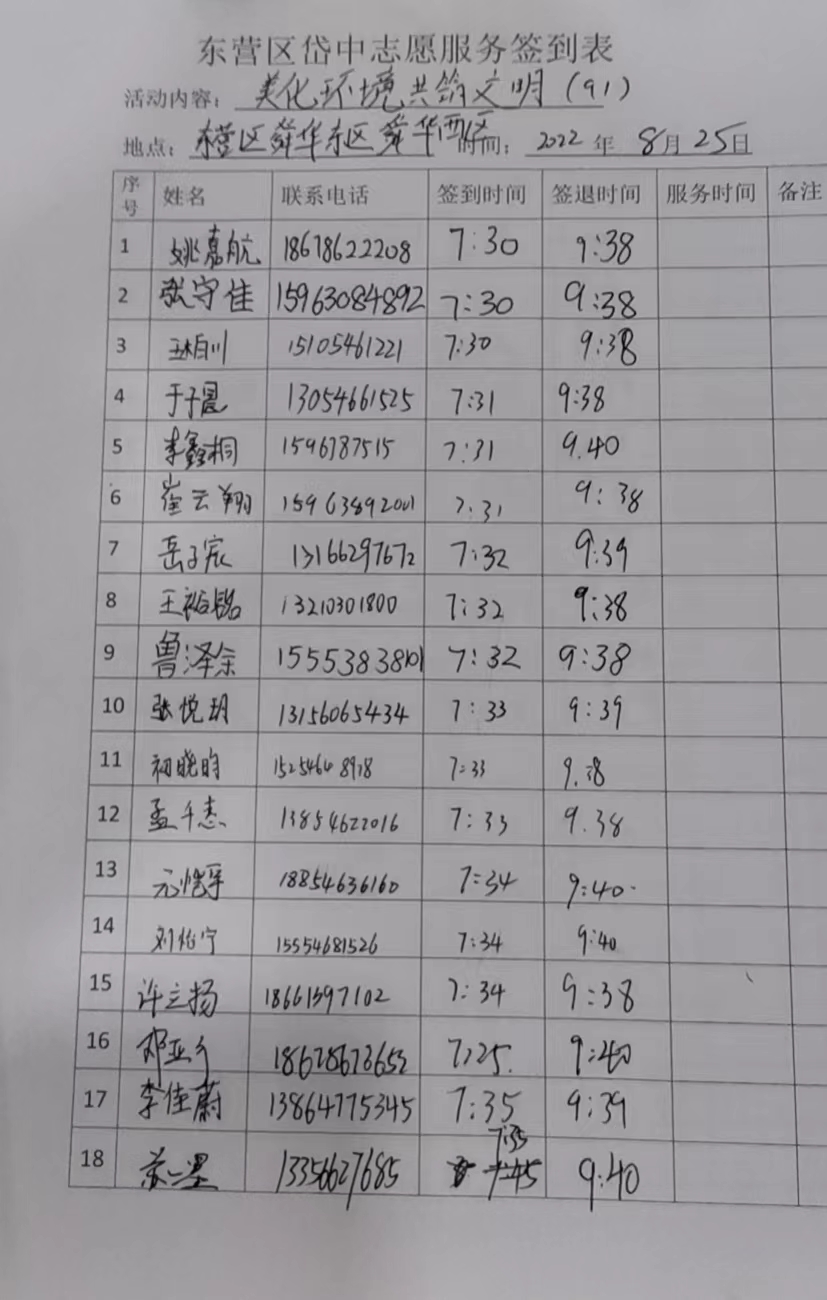 东营区岱中志愿服务签到表
活动内容：美化环境共筑文明（91）
地点：东营区舜华东区 舜华西区 时间：2022 年 8月 25日
序号 姓名 联系电话 签到时间 签退时间 服务时间 备注
1 姚嘉航 18678622208 7:30 9:38
2 张守佳 15963084892 7:30 9:38
3 15105461221 7:30 9:38
4 于子晨 13054661525 7:31 9:38
5 李鑫桐 1596787515 7:31 9.40
6 崔云翔 15963892001 7.31 9:38
7 岳子宸 13166297672 7:32 9:39
8 王裕铭 13210301800 7:32 9:38
9 鲁泽余 15553838101 7:32 9:38
10 张悦玥 13156065434 7:33 9:39
11 初晓昀 7:33 9.38
12 孟千惠 13854622016 7:33 9.38
13 18854636160 7:34 9:40
14 刘怡宁 15554681526 7:34 9:40
15 许立扬 18661397102 7:34 9:38
16 邓亚 9:40
17 李佳蔚 13864775345 7:35 9:39
18 苏一墨 13356627685 7:35 7:45 9:40